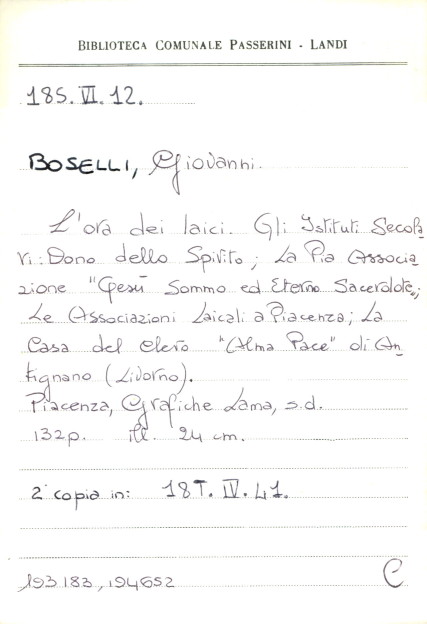 BIBLIOTECA COMUNALE PASSERINI - LANDI
18S. VI. 12.
BOSELLI, Giovanni.
L'ora dei laici. Gli Istituti Secola
ri: Dono dello Spirito; La Pia Associa
zione "Gesù Sommo ed Eterno Sacerdote";
Le Associazioni Laicali a Piacenza; La
Casa del clero "Alma Pace" di An
tignano (Livorno).
Piacenza, Grafiche Lama, s.d.
132p. ill. 24 cm.
2ª copia in: 18T. IV. 41.
193183, 194652
C